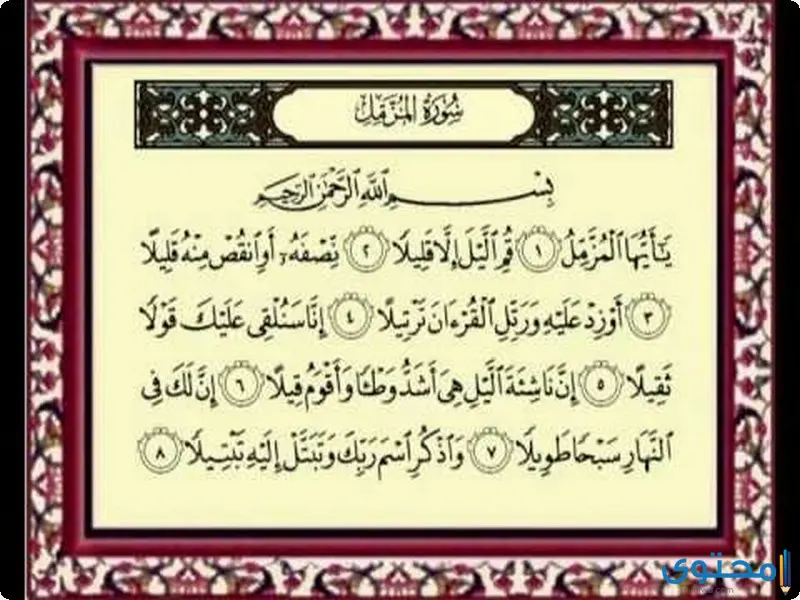 سُورَةُ المُزَّمِّلِ
بِسْمِ اللَّهِ الرَّحْمَٰنِ الرَّحِيمِ
يَٰٓأَيُّهَا ٱلْمُزَّمِّلُ ١ قُمِ ٱلَّيْلَ إِلَّا قَلِيلًا ٢ نِّصْفَهُۥٓ أَوِ ٱنقُصْ مِنْهُ قَلِيلًا
٣ أَوْ زِدْ عَلَيْهِ وَرَتِّلِ ٱلْقُرْءَانَ تَرْتِيلًا ٤ إِنَّا سَنُلْقِى عَلَيْكَ قَوْلًا
ثَقِيلًا ٥ إِنَّ نَاشِئَةَ ٱلَّيْلِ هِىَ أَشَدُّ وَطْـًٔا وَأَقْوَمُ قِيلًا ٦ إِنَّ لَكَ فِى
ٱلنَّهَارِ سَبْحًا طَوِيلًا ٧ وَٱذْكُرِ ٱسْمَ رَبِّكَ وَتَبَتَّلْ إِلَيْهِ تَبْتِيلًا ٨
محتوى